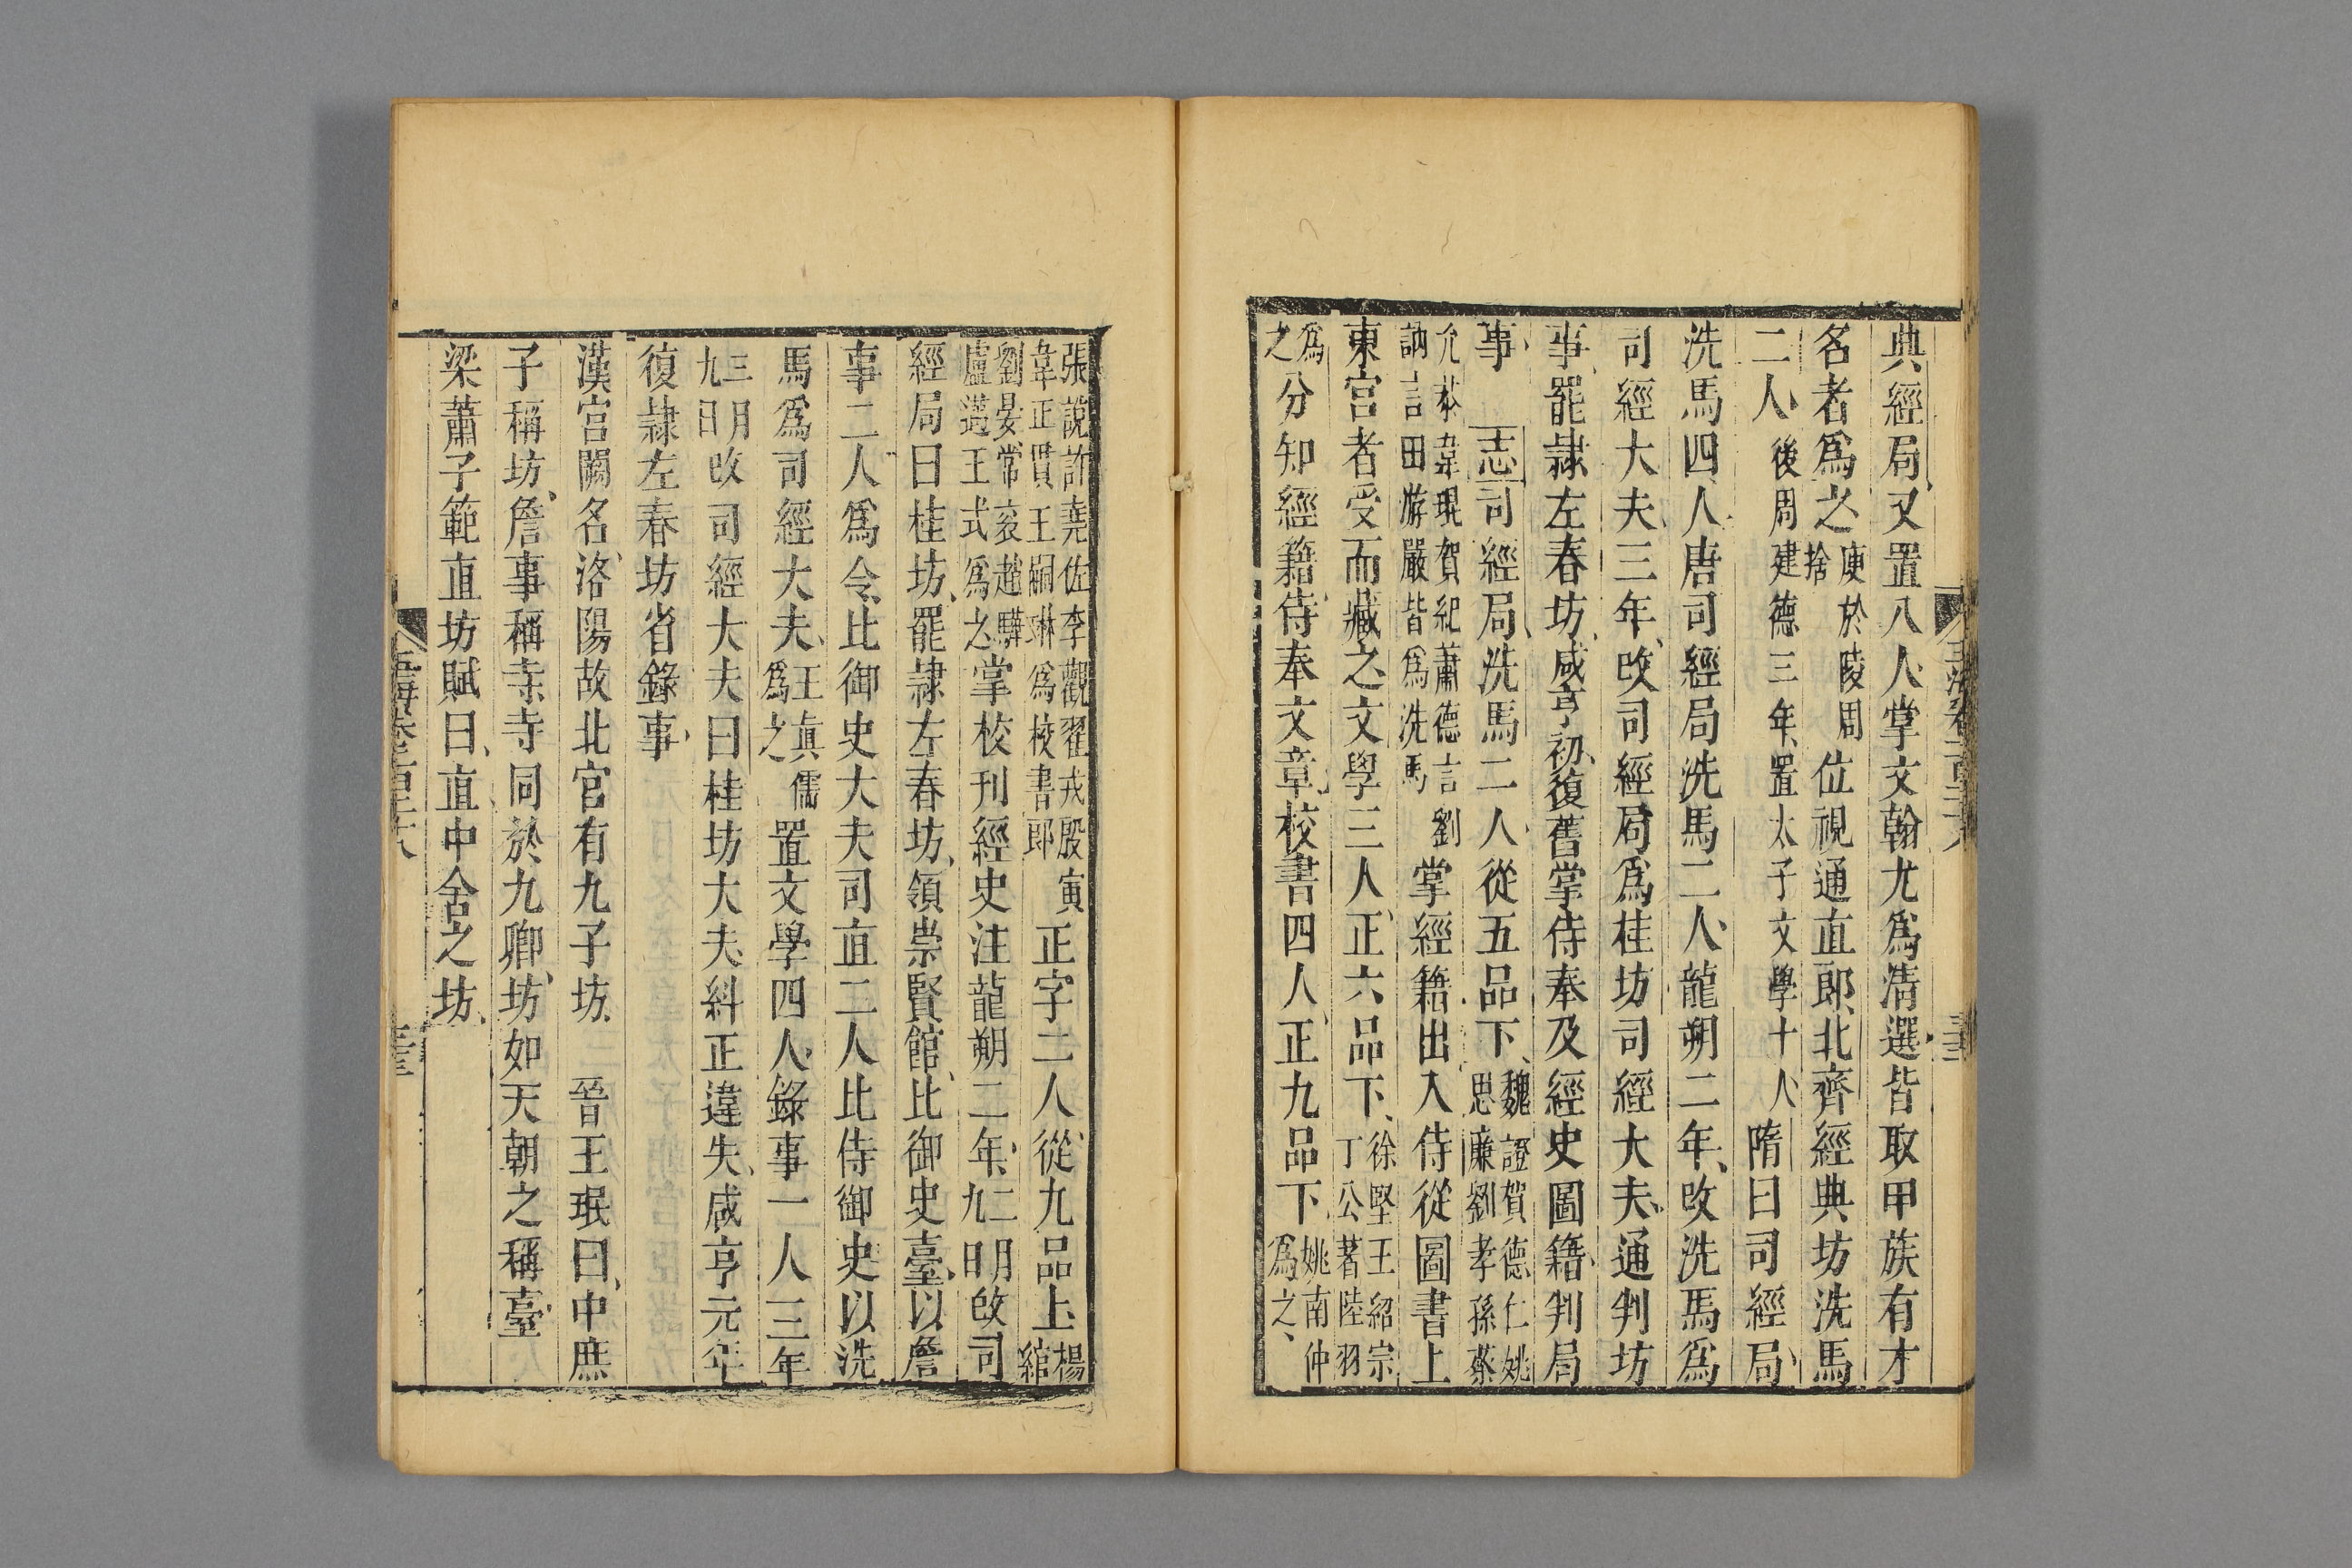 典經局又置八人掌文翰尤爲清選皆取甲族有才
名者爲之庾於陵周捨位視通直郎北齊經典坊洗馬
二人後周建德三年置太子文學十人隋曰司經局
洗馬四人唐司經局洗馬二人龍朔二年改洗馬爲
司經大夫三年改司經局爲桂坊司經大夫通判坊
事罷隷左春坊咸亨初復舊掌侍奉及經史圖籍判局
事志司經局洗馬二人從五品下魏證賀德仁姚思廉劉孝孫蔡
允恭韋琨賀紀蕭德言劉訥言田游嚴皆爲洗馬掌經籍出入侍從圖書上
東宮者受而藏之文學三人正六品下徐堅王紹宗丁公著陸羽
爲之分知經籍侍奉文章校書四人正九品下姚南仲爲之
張說許堯佐李觀翟戎殷寅韋正貫王嗣琳爲校書郎正字二人從九品上楊綰
劉晏常袞趙驊盧邁王式爲之掌校刊經史注龍朔二年二月九日改司
經局曰桂坊罷隷左春坊領崇賢館比御史臺以詹
事二人爲令比御史大夫司直二人比侍御史以洗
馬爲司經大夫王眞儒爲之置文學四人錄事一人三年
三月九日改司經大夫曰桂坊大夫糾正違失咸亨元年
復隷左春坊省錄事
漢宫闕名洛陽故北宮有九子坊　晉王珉曰中庶
子稱坊詹事稱寺寺同於九卿坊如天朝之稱臺
梁蕭子範直坊賦曰直中舍之坊